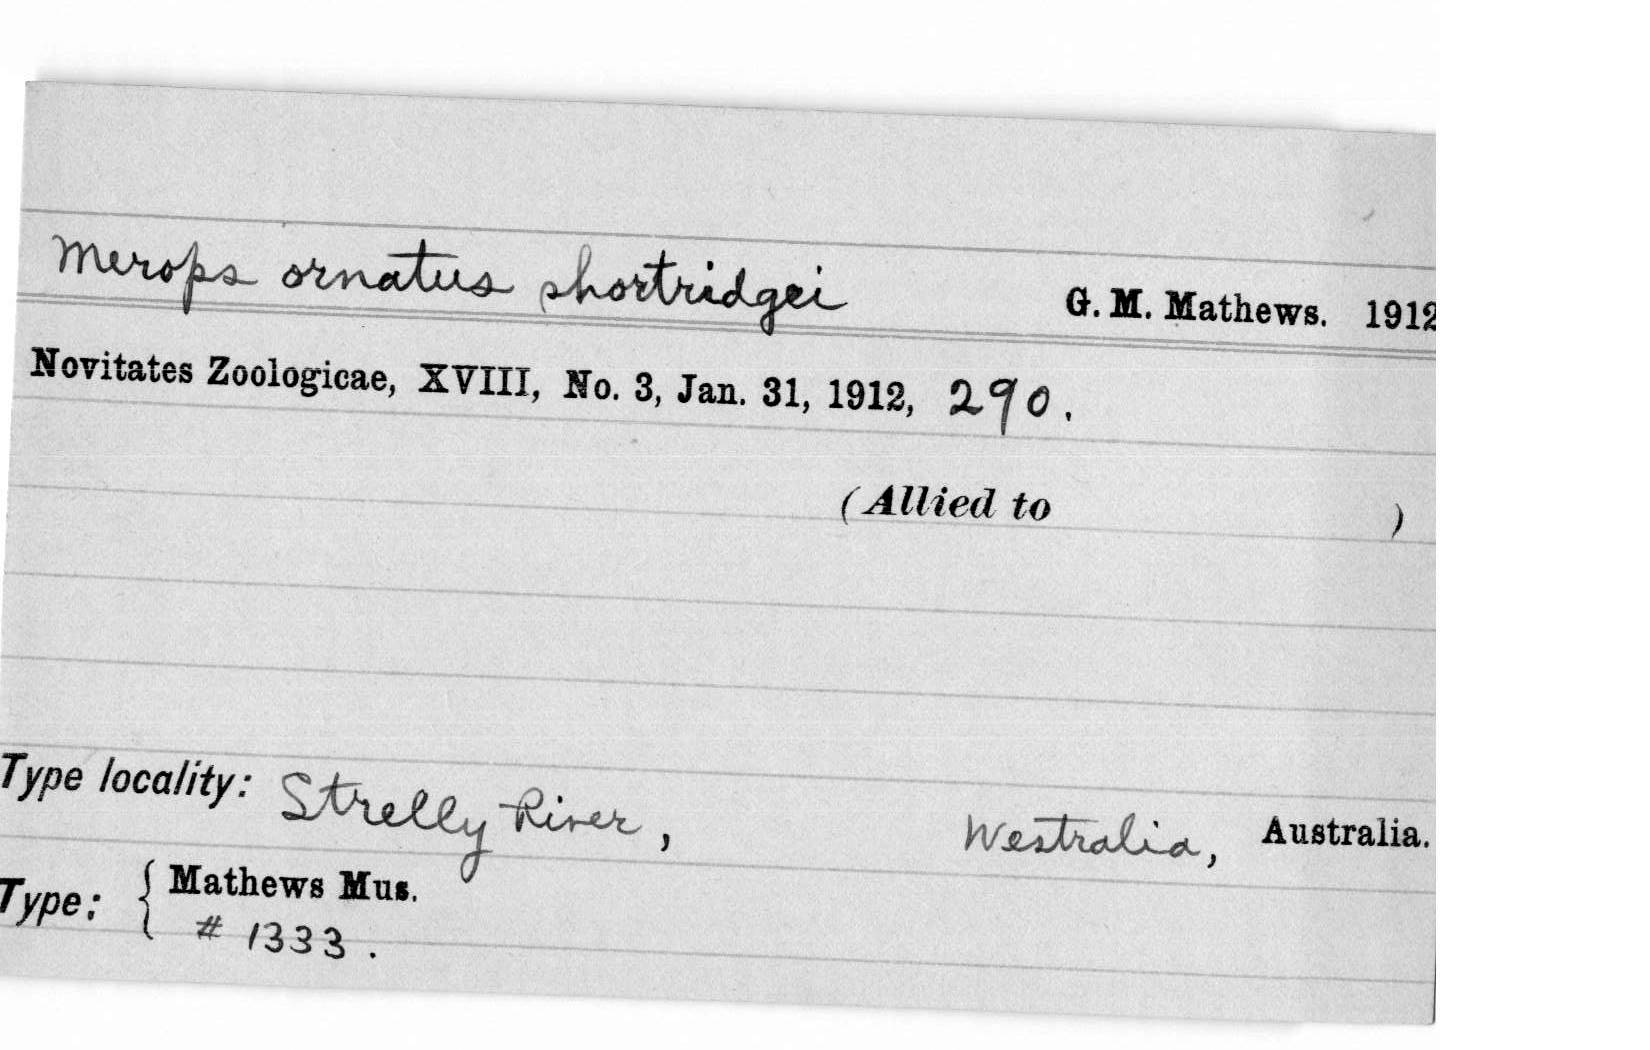 Merops ornatus shortridgei G. M. Mathews. 1912
Novitates Zoologicae, XVIII, No. 3, Jan. 31, 1912, 290.
(Allied to )
Type locality: Strelly River, Westralia, Australia.
Type: { Mathews Mus.
# 1333.